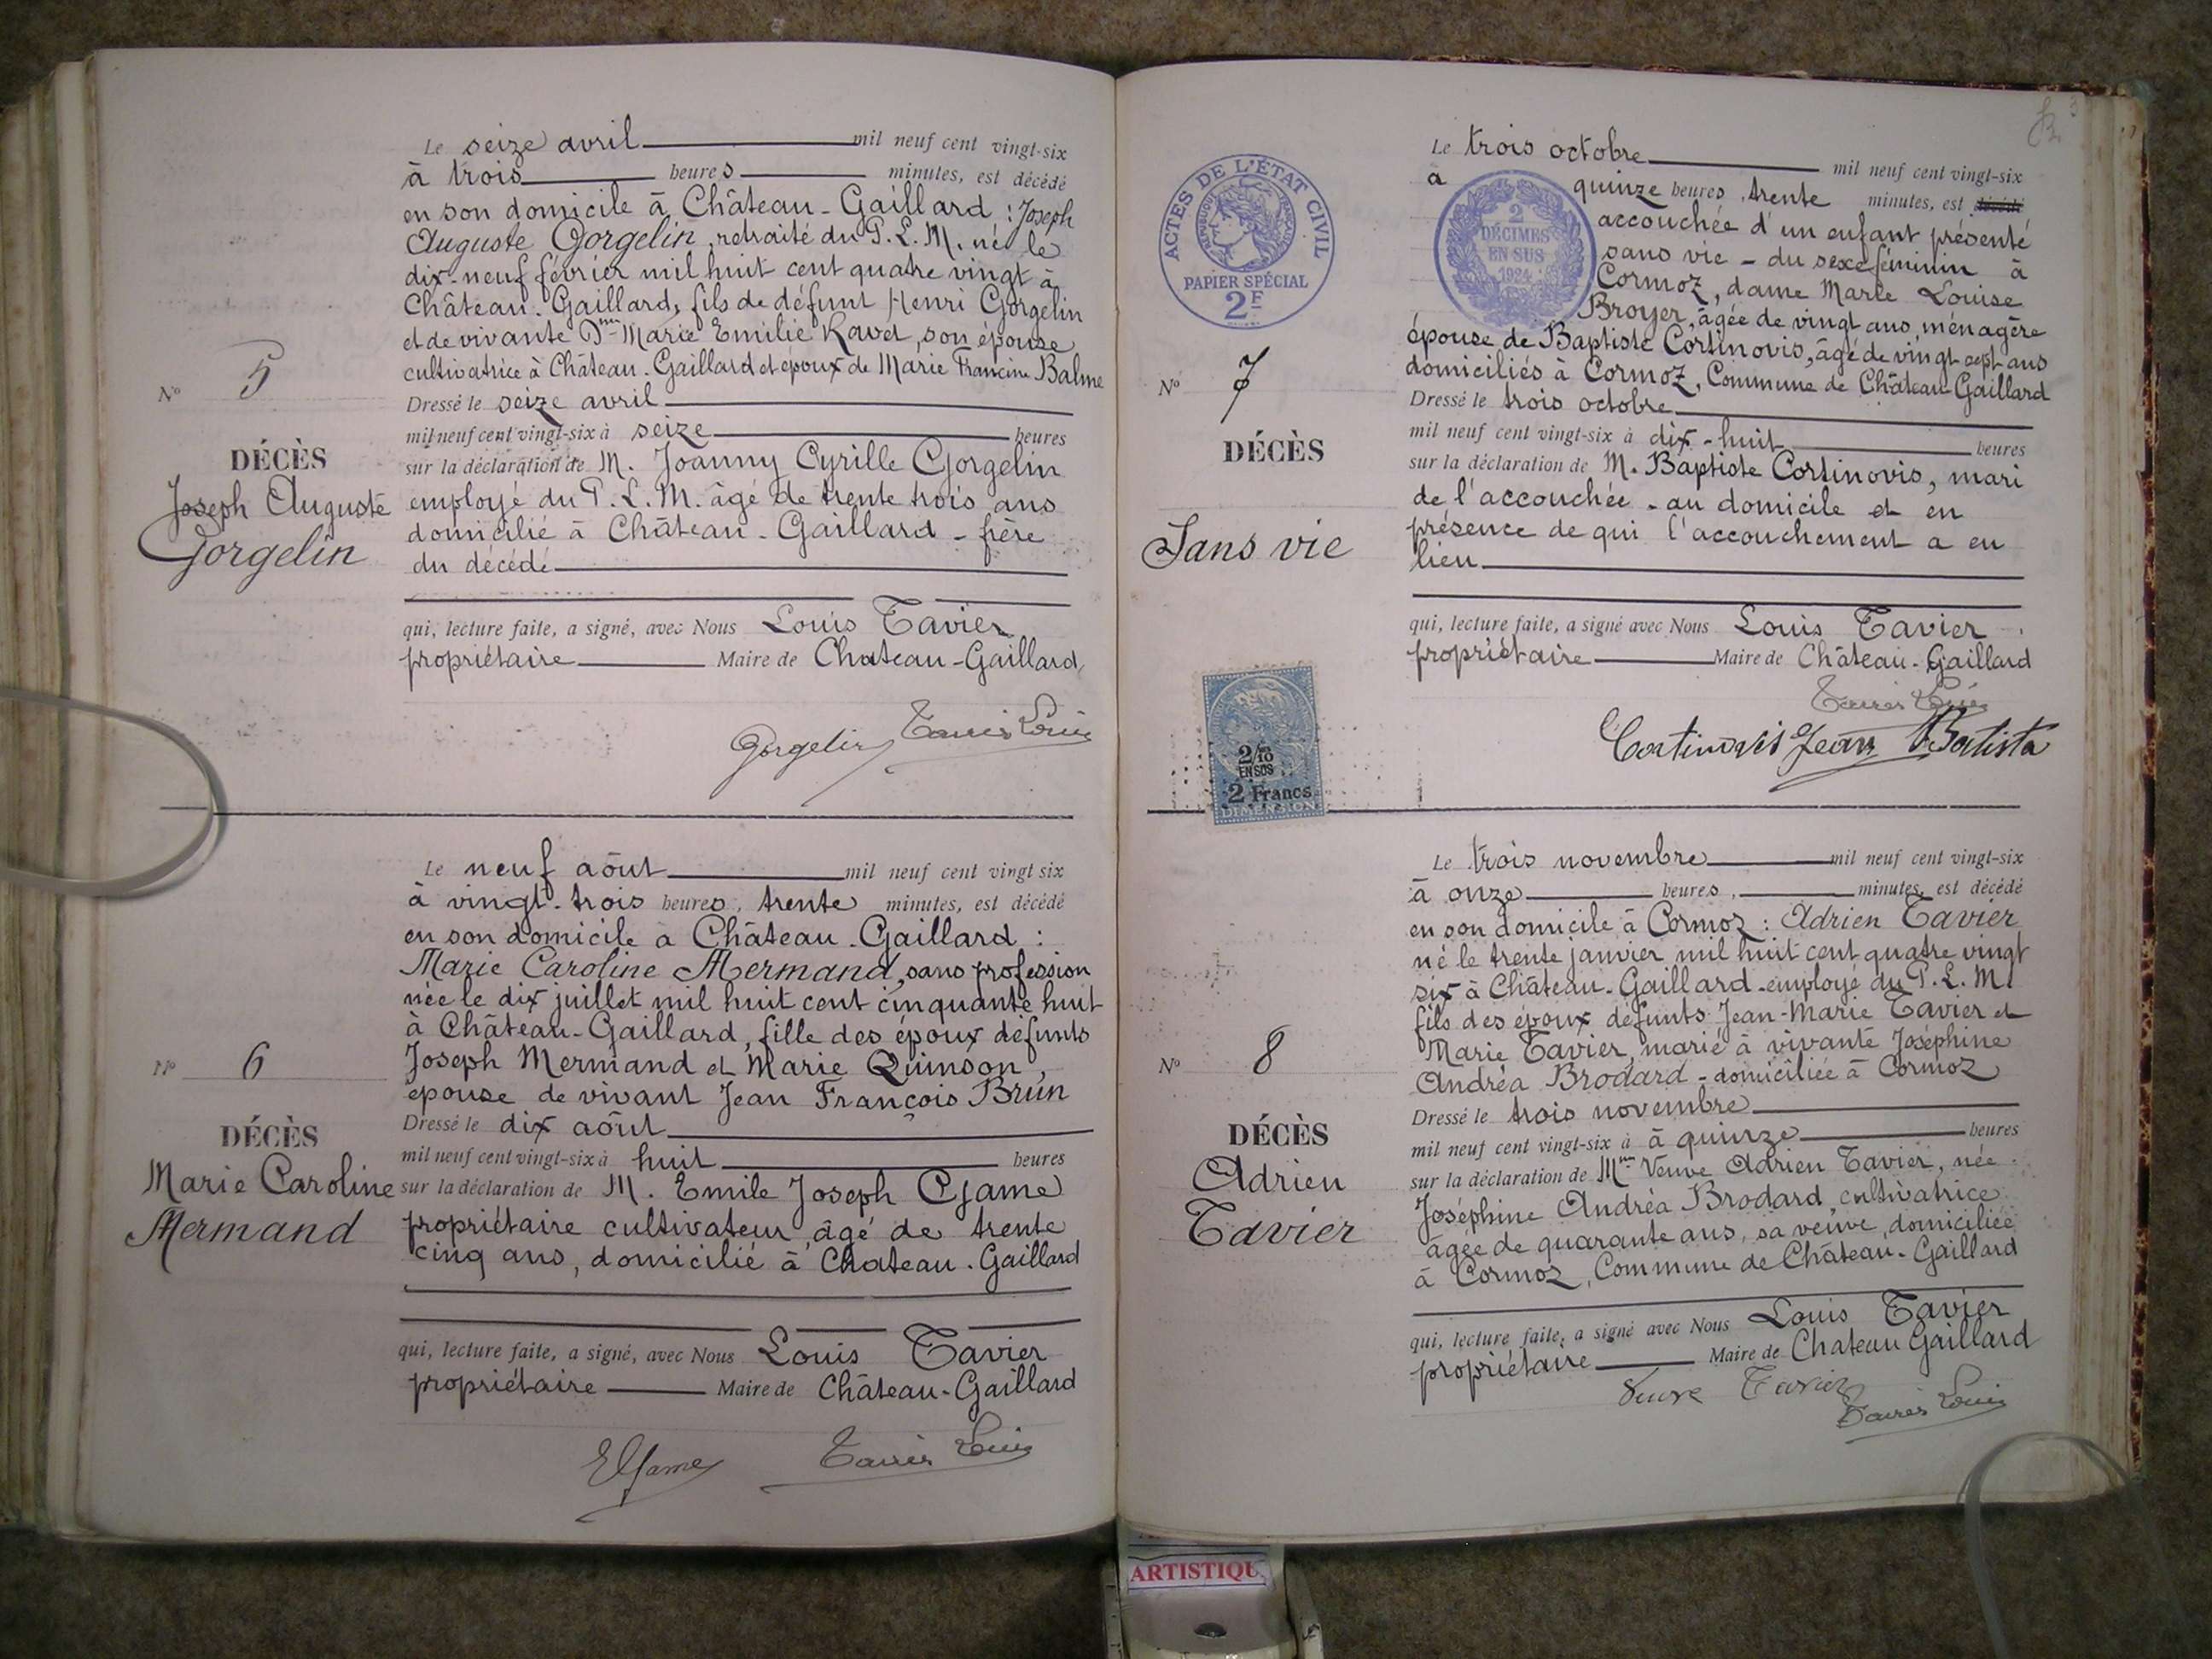 Le seize avril mil neuf cent vingt-six
à trois heures minutes, est décédé
en son domicile à Château-Gaillard : Joseph
Auguste Gorgelin, retraité du P.L.M. né le
dix-neuf février mil huit cent quatre vingt à
Château-Gaillard, fils de défunt Henri Gorgelin
et de vivante Dme Marie Emilie Ravet, son épouse
cultivatrice à Château-Gaillard et époux de Marie Francine Balme
Dressé le seize avril
mil neuf cent vingt-six à seize heures
sur la déclaration de M. Joanny Cyrille Gorgelin
employé du P.L.M. âgé de trente trois ans
domicilié à Château-Gaillard - frère
du décédé
qui, lecture faite, a signé, avec Nous Louis Tavier
propriétaire Maire de Chateau-Gaillard
Gorgelin Tavier Louis
No 5
DÉCÈS
Joseph Auguste
Gorgelin
Le neuf août mil neuf cent vingt six
à vingt-trois heures, trente minutes, est décédé
en son domicile à Château-Gaillard :
Marie Caroline Mermand, sans profession
née le dix juillet mil huit cent cinquante huit
à Château-Gaillard, fille des époux défunts
Joseph Mermand et Marie Quinson,
épouse de vivant Jean François Brun
Dressé le dix août
mil neuf cent vingt-six à huit heures
sur la déclaration de M. Emile Joseph Game
propriétaire cultivateur, âgé de trente
cinq ans, domicilié à Chateau-Gaillard
qui, lecture faite, a signé, avec Nous Louis Tavier
propriétaire Maire de Château-Gaillard
EGame Tavier Louis
No 6
DÉCÈS
Marie Caroline
Mermand
ACTES DE L'ÉTAT CIVIL
RÉPUBLIQUE FRANÇAISE
PAPIER SPÉCIAL
2F
2
DÉCIMES
EN SUS
1924
Le trois octobre mil neuf cent vingt-six
à quinze heures, trente minutes, est décédé
accouchée d'un enfant présenté
sans vie - du sexe féminin à
Cormoz, dame Marie Louise
Broyer, âgée de vingt ans, ménagère
épouse de Baptiste Cortinovis, âgé de vingt sept ans
domiciliés à Cormoz, Commune de Château-Gaillard
Dressé le trois octobre
mil neuf cent vingt-six à dix-huit heures
sur la déclaration de M. Baptiste Cortinovis, mari
de l'accouchée - au domicile et en
présence de qui l'accouchement a eu
lieu
qui, lecture faite, a signé avec Nous Louis Tavier
propriétaire Maire de Château-Gaillard
Tavier Louis
Cortinovis Jean Batista
No 7
DÉCÈS
Sans vie
2/10
EN SUS
2 Francs
DIMENSION
Le trois novembre mil neuf cent vingt-six
à onze heures, minutes, est décédé
en son domicile à Cormoz : Adrien Tavier
né le trente janvier mil huit cent quatre vingt
six à Château-Gaillard - employé du P.L.M.
fils des époux défunts Jean-Marie Tavier et
Marie Tavier, marié à vivante Joséphine
Andréa Brodard - domiciliée à Cormoz
Dressé le trois novembre
mil neuf cent vingt-six à à quinze heures
sur la déclaration de Mme Veuve Adrien Tavier, née
Joséphine Andréa Brodard, cultivatrice
âgée de quarante ans, sa veuve, domiciliée
à Cormoz, Commune de Château-Gaillard
qui, lecture faite, a signé avec Nous Louis Tavier
propriétaire Maire de Chateau Gaillard
Veuve Tavier
Tavier Louis
No 8
DÉCÈS
Adrien
Tavier
ARTISTIQU